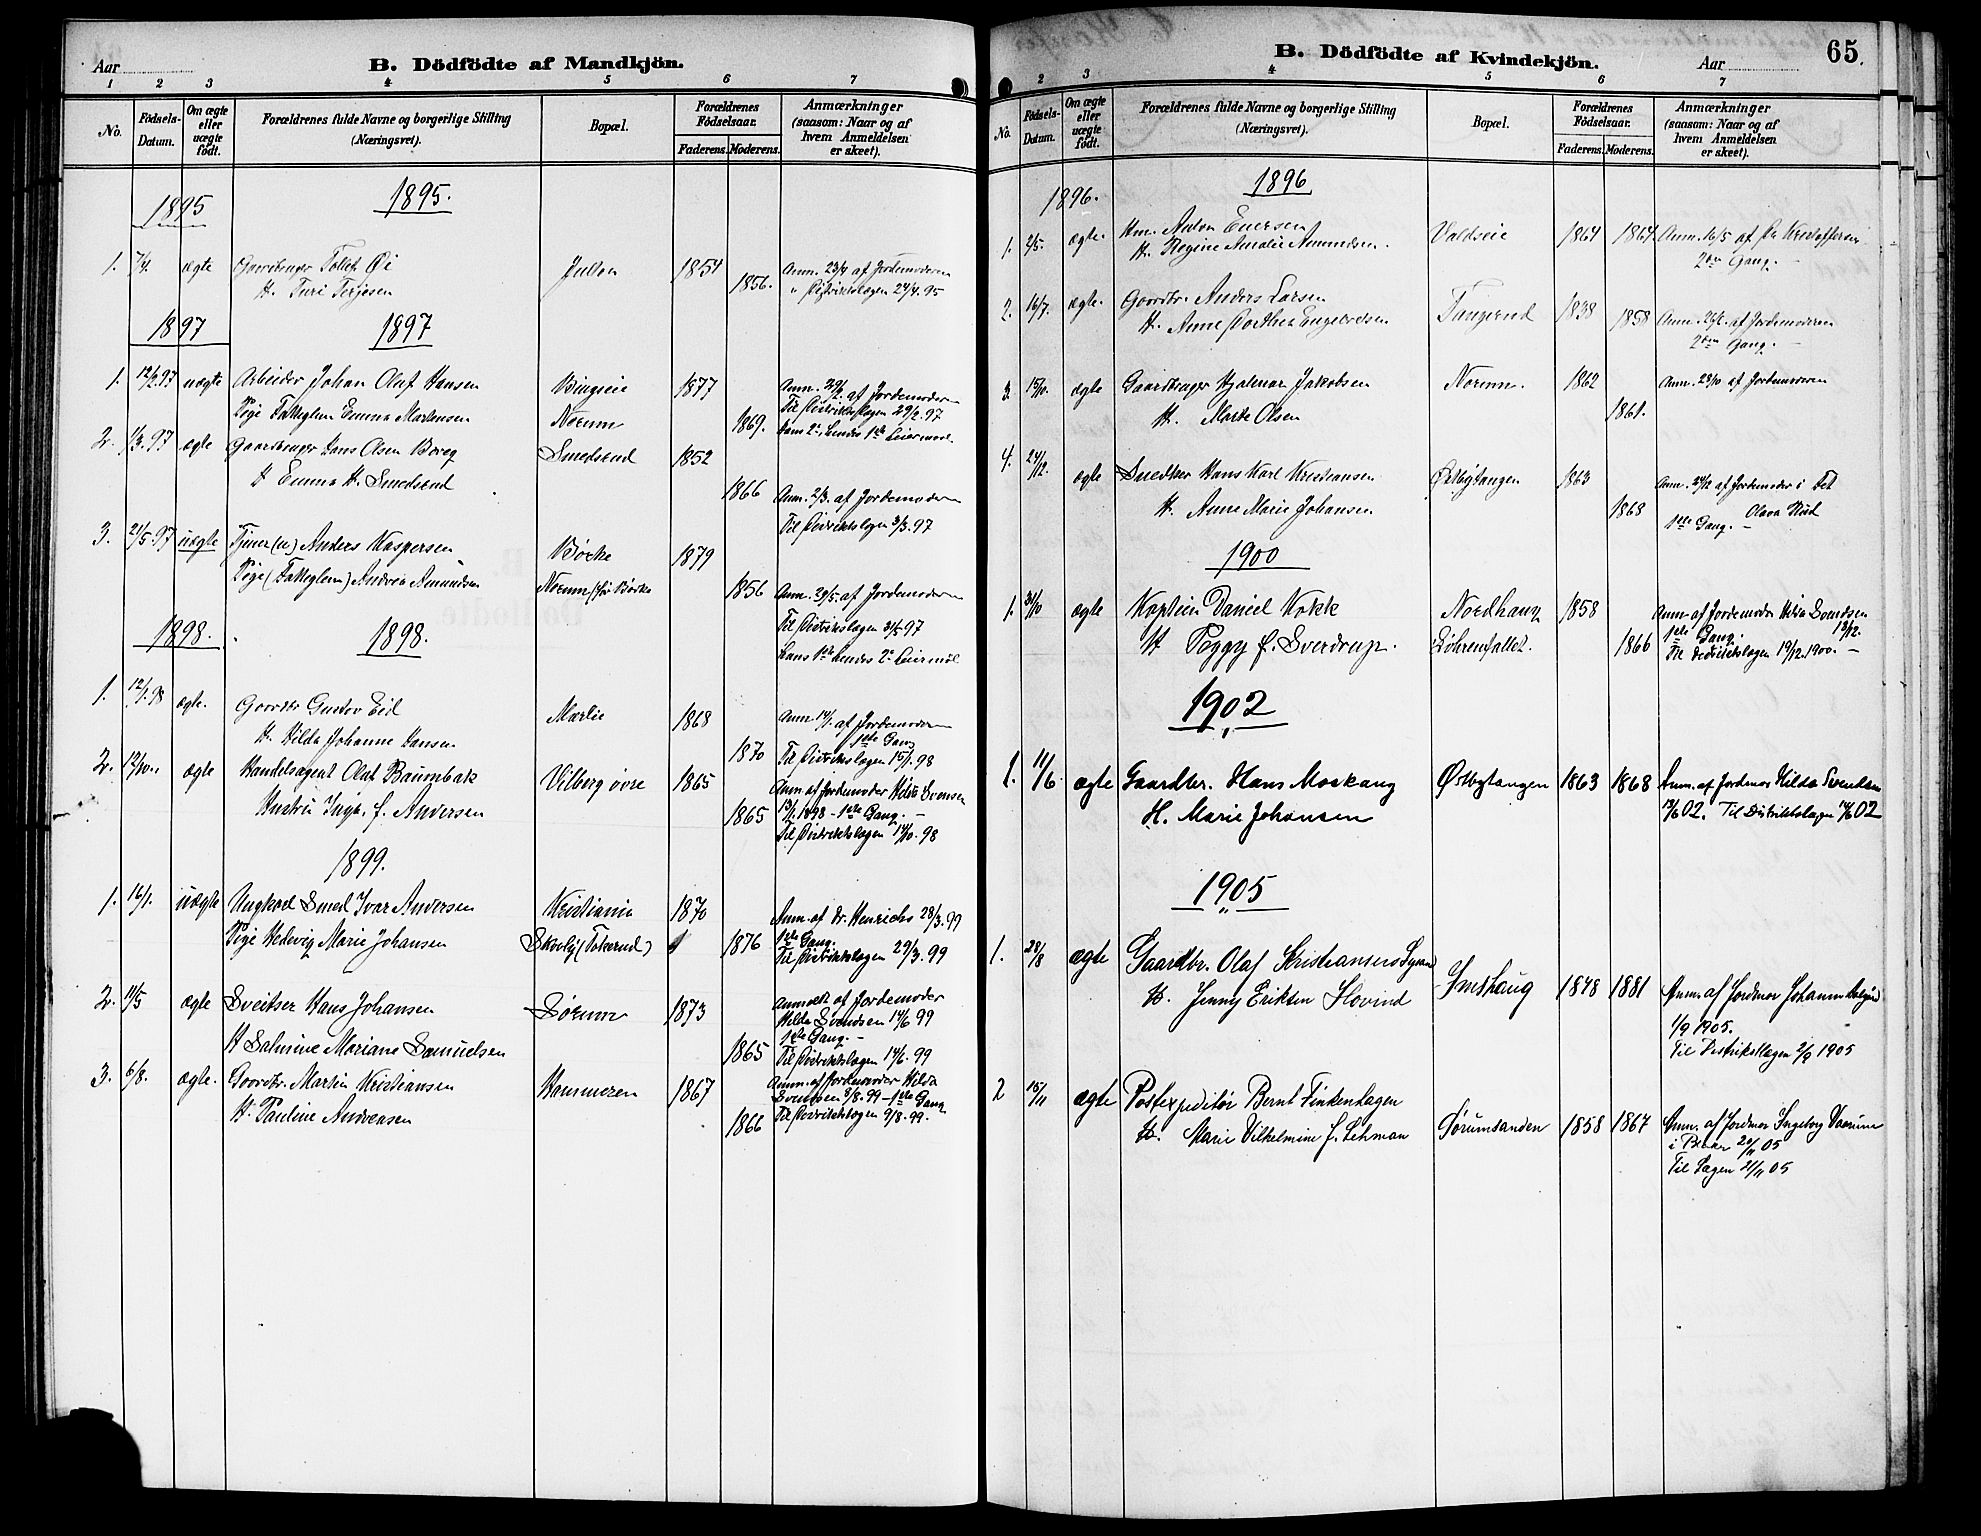 Aar
B. Dödfödte af Mandkjön.
1 2 3 4 5 6 7
No.
Födsels-
Datum.
Om ægte
eller
uægte
födt.
Forældrenes fulde Navne og borgerlige Stilling
(Næringsvei).
Bopæl.
Forældrenes
Födselsaar.
Faderens. Moderens.
Anmærkninger
(saasom: Naar og af
hvem Anmeldelsen
er skeet).
1895 1895.
1. 7/4. ægte Gaardbruger Øi 1854 Anm. 23/4 af Jordemoderen
H. Turi Terjesen 1856. " Distriktslægen 24/4. 95
1897 1897
1. 12/2.97 uægte Arbeider Johan Olaf Hansen 1877 Anm. af Jordemoderen
Pige Emma Martensen Norum 1869. Til Distriktslægen 29/2.97
2. 1/3.97 ægte Gaardbruger Hans Olsen Smedsrud 1852
H Emma H. Smedsrud 1866 Anm. 2/3. af Jordemoderen
Til Distriktslægen 3/3.97
3. 21/5.97 uægte Tjener (u) Anders Kaspersen Børke 1879
Pige Andrea Amundsen Norum 1856 Anm. 29/5. af Jordemoderen
Til Distriktslægen 31/5 97
1898. 1898.
Hans 1ste hendes 2. Leiermål
1. 12/1.98 ægte. Gaardbr Gustav Eid Mærlie 1868 Anm. 14/1. af Jordemoderen
H. Hilda Johanne Hansen 1870 1ste Gang
Til Distriktslægen 15/1.98
2. 12/10. ægte Handelsagent Olaf Baumbak Vilberg øvre 1865 Anm af Jordemoder
Hustru f. Andersen 1865 1898 - 1ste Gang. -
Til Distriktslægen 14/10. 98
1899.
1. 16/1. uægte Ungkarl Smed Ivar Andersen Kristiania 1870 Anm. af Dr. Henrichs 28/3.99
Pige Hedevig Marie Johansen 1876 1ste Gang.
Til Distriktslægen 29/3.99
2. 11/5 ægte Sveitser Hans Johansen Sørum 1873 af Jordemoder
Hilda Svendsen 14/6 99
H Mariane Samuelsen 1865 1ste Gang. -
Til Distriktslægen 14/6. 99
3. 6/8. ægte. Gaardbr. Martin Kristiansen Hammeren 1867 Anm. af Jordemoder Hilda
Svendsen 8/8.99 - 1ste Gang
H. Pauline Andreasen 1866 Til Distriktslægen 9/8.99.
B. Dödfödte af Kvindekjön.
Aar 65.
2 3 4 5 6 7
No.
Födsels-
Datum.
Om ægte
eller
uægte
födt.
Forældrenes fulde Navne og borgerlige Stilling
(Næringsvei).
Bopæl.
Forældrenes
Födselsaar.
Faderens. Moderens.
Anmærkninger
(saasom: Naar og af
hvem Anmeldelsen
er skeet).
1896. 1896
1. 2/5. ægte. Hm. Anton Enersen 1864 1864. Anm. 16/5 af
H. Regine Amalie Amundsen. 2den Gang. -
2. 16/7. ægte. Gaardbr. Anders Larsen 1838 1858 Anm. af Jordemoderen
H. Anne Dorthea Engebretsen 2den Gang. -
3. 15/10. ægte Gaardbruger Hjalmar Jakobsen Norum. 1862 Anm. 29/10 af Jordemoderen
H. Marte Olsen 1861.
4. 24/12. ægte Snedker Hans Karl Kristiansen Ørbygtangen 1863 Anm. 24/12 af Jordemoder i Fet
H. Anne Marie Johansen 1868 1ste Gang. -
1900
1. 31/10 ægte Kaptein Daniel Nordhaug 1858 Anm. af Jordemoder Hilda Svendsen
1ste Gang. 18/12.
H Peggy f. Sverdrup. 1866 Til Distriktslægen 19/12.1900. -
1902
1. 11/6 ægte Gaardbr. Hans Moskaug Ørbygtangen 1863 1868 Anm. af Jordmor Hilda Svendsen
H. Marie Johansen 13/6 02. Til Distriktslægen 14/6 02
1905
1. 28/8 ægte Gaardbr. Olaf Kristiansen
H. Jenny Eriksen Hovind Smshaug 1848 1881 Anm. af Jordmor
1/9 1905.
Til Distriktslægen 2/9 1905
2 15/11 ægte Postexpeditör Bernt Finkenhagen
H. Marie Vilhelmine f. Lehman Sørumsanden 1858 1867 Anm. af Jordmor Ingeborg
i 20/11 05
Til Lægen 21/11 05